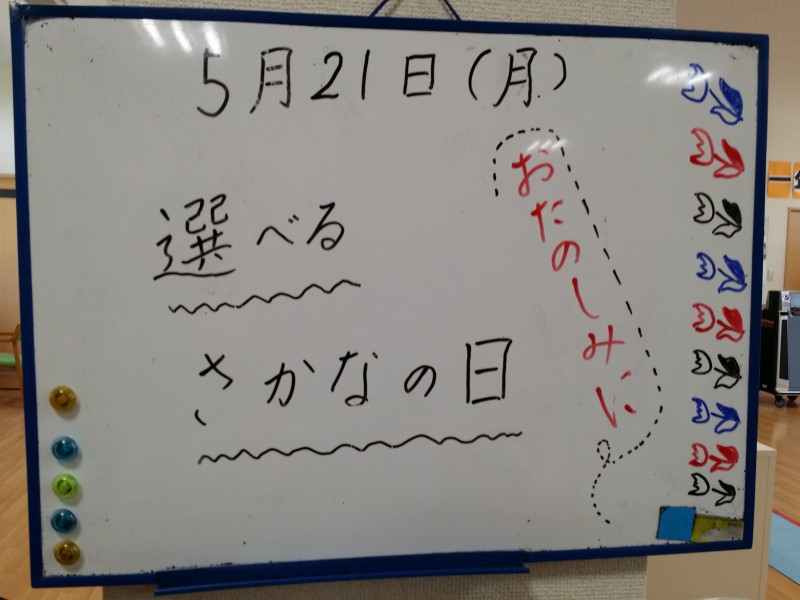 5月21日(月)
選べる
さかなの日
おたのしみに